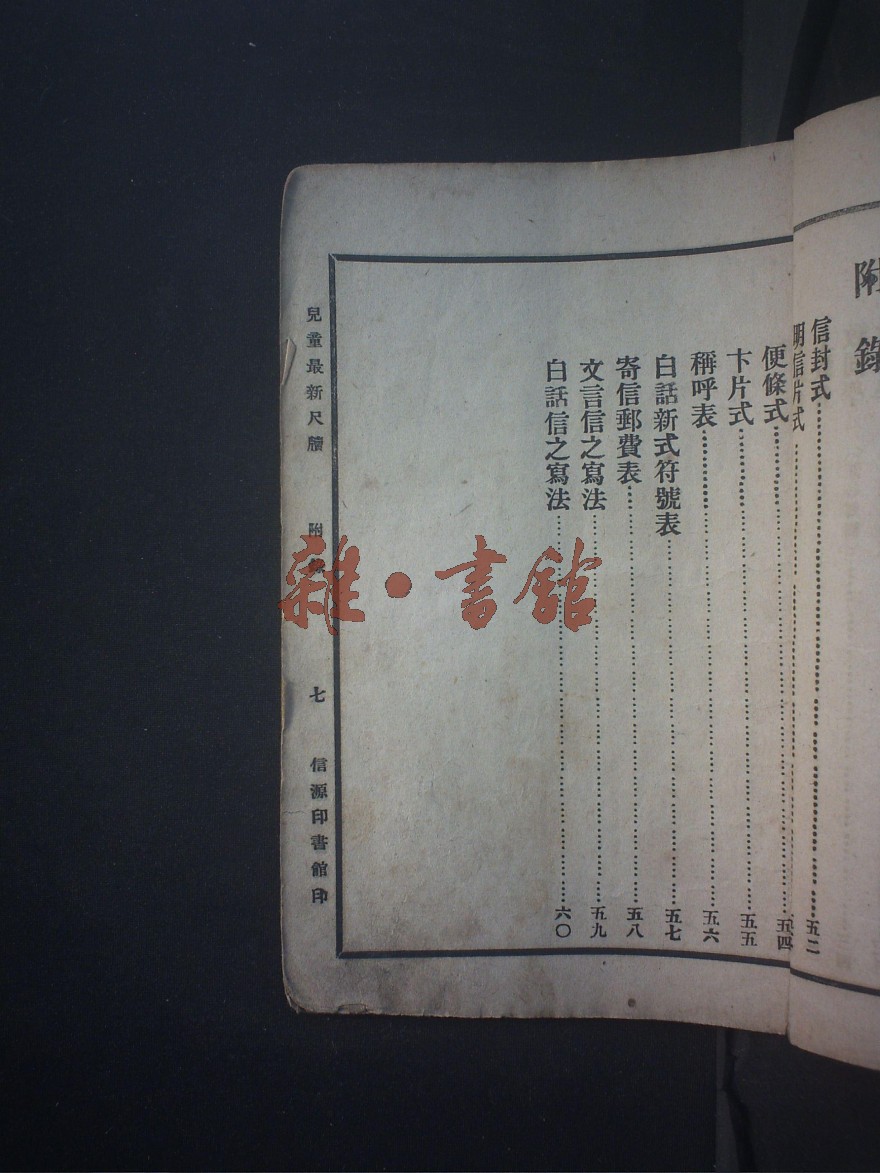 附錄
信封式……五二
明信片式……
便條式……五四
卞片式……五五
稱呼表……五六
白話新式符號表……五七
寄信郵費表……五八
文言信之寫法……五九
白話信之寫法……六〇
兒童最新尺牘 附 七 信源印書館印
雜·書館